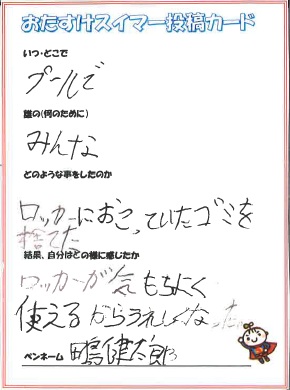 おたすけスイマー投稿カード
いつ・どこで
プールで
誰の(何のために)
みんな
どのような事をしたのか
ロッカーにおこっていたゴミを
捨てた
結果、自分はどの様に感じたか
ロッカーが気もちにく
使えるからうれしくなった
ペンネーム 健太郎